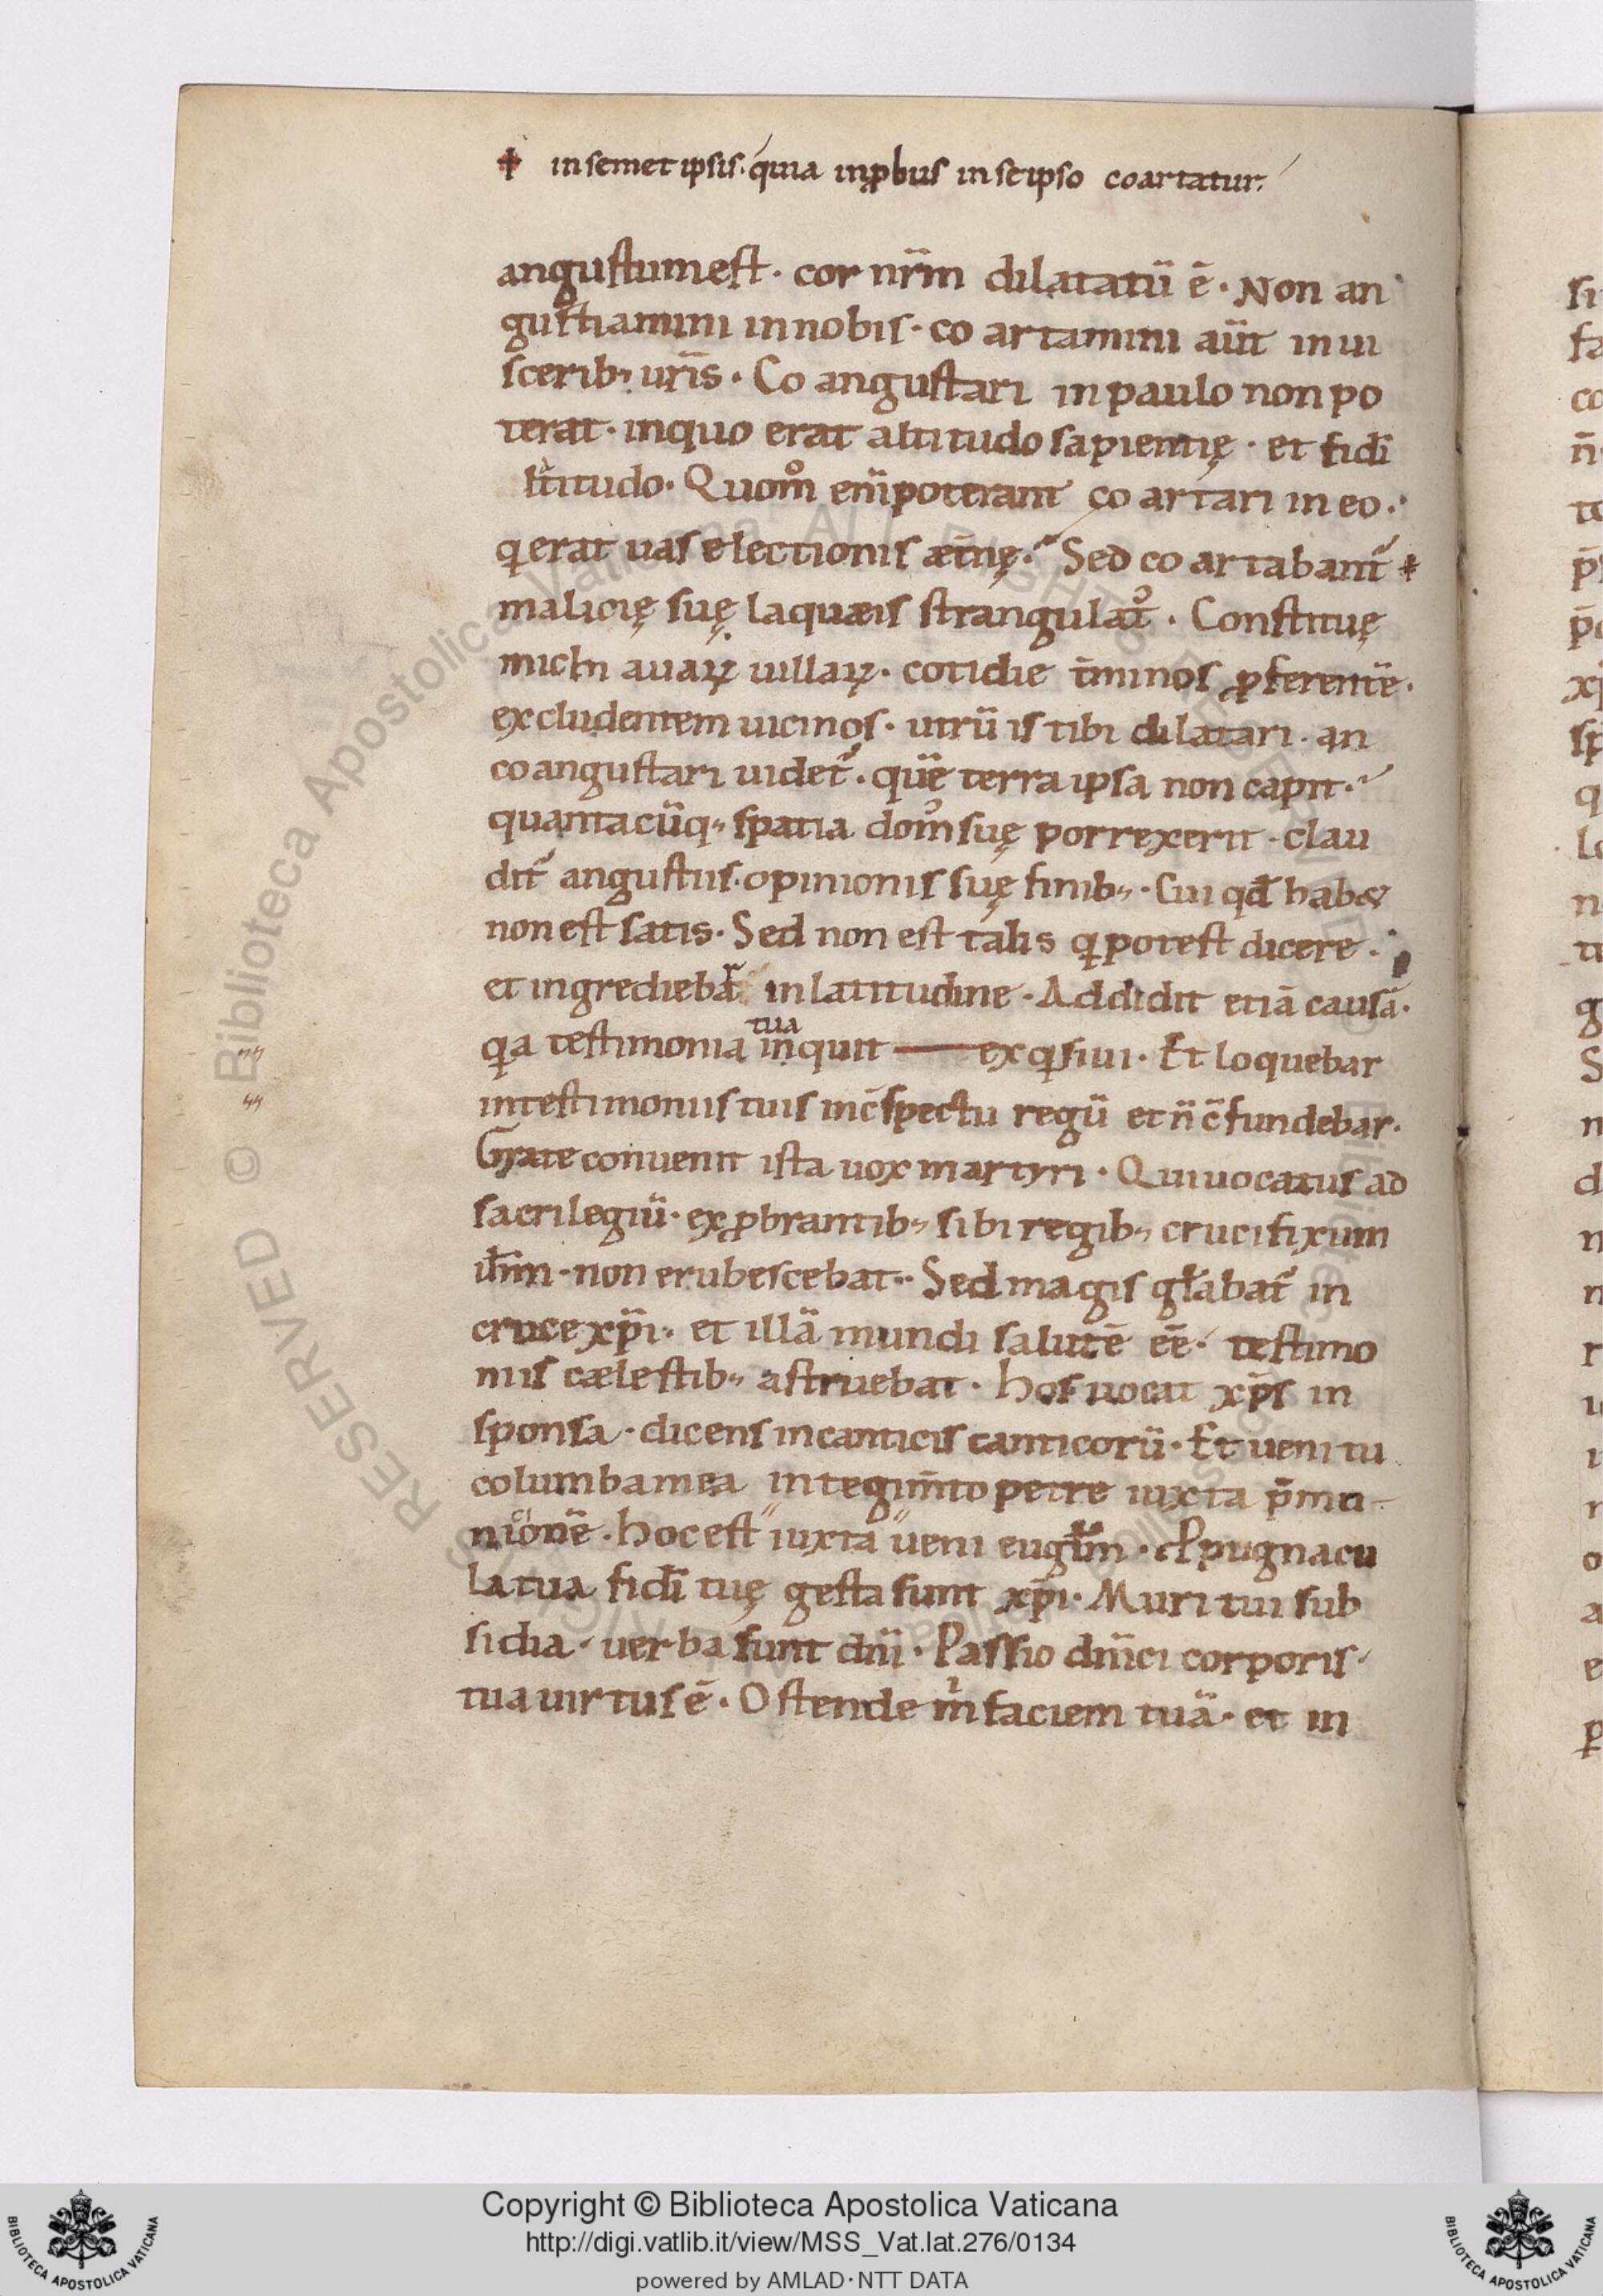 in semet ipsis. quia inꝓbus in se ipso coartatur.
angustum est. cor nr̄m dilatatū ē. Non an
gustiamini in nobis. co artamini aūt in ui
scerib; ur̄is. Co angustari in paulo non po
terat. in quo erat altitudo sapientię. et fidī
Quom̊ enī poterant co artari in eo.
q erat uas electionis æt̄nę. Sed co artabant᷒
malicię suę laquæis strangulat᷒. Constituę
michi auaꝝ uillaꝝ. cotidie t̄minos ꝓferentē.
excludentem uicinos. utrū is tibi dilatari. an
coangustari uidet᷒. quē terra ipsa non capit.
quantacūq; spatia dom᷒ suę porrexerit. clau
dit᷒ angustiis. opinionis suę finib;. Cui qđ hab&
non est satis. Sed non est talis q potest dicere.
et ingredieba᷒r in latitudine. Addidit etiā causā.
qa testimonia tua inquit exqsiui. Et loquebar
in testimoniis tuis in c̄spectu regū et n̄ c̄fundebar.
Grate conuenit ista uox martyri. Qui uocatus ad
sacrilegiū. exꝓbrantib; sibi regib; crucifixum
ih̄m. non erubescebat. Sed magis gl̄abat᷒ in
cruce xp̄i. et illā mundi salutē eē. testimo
niis cælestib; astruebat. Hos uocat xp̄s in
sponsa. dicens in canticis canticorū. Et ueni tu
columba mea in tegim̄to petre iuxta p̄mu
nionē. hoc est iuxta ueni eugl̄m. Ppugnacu
la tua fidī tuę gesta sunt xp̄i. Muri tui sub
sidia. uerba sunt dn̄i. Passio dn̄ici corporis.
tua uirtus ē. Ostende m̄ faciem tuā. et in
RESERVED © Biblioteca Apostolica Vaticana. ALL RIGHTS RESERVED
Copyright © Biblioteca Apostolica Vaticana
http://digi.vatlib.it/view/MSS_Vat.lat.276/0134
powered by AMLAD·NTT DATA
BIBLIOTECA APOSTOLICA VATICANA
BIBLIOTECA APOSTOLICA VATICANA